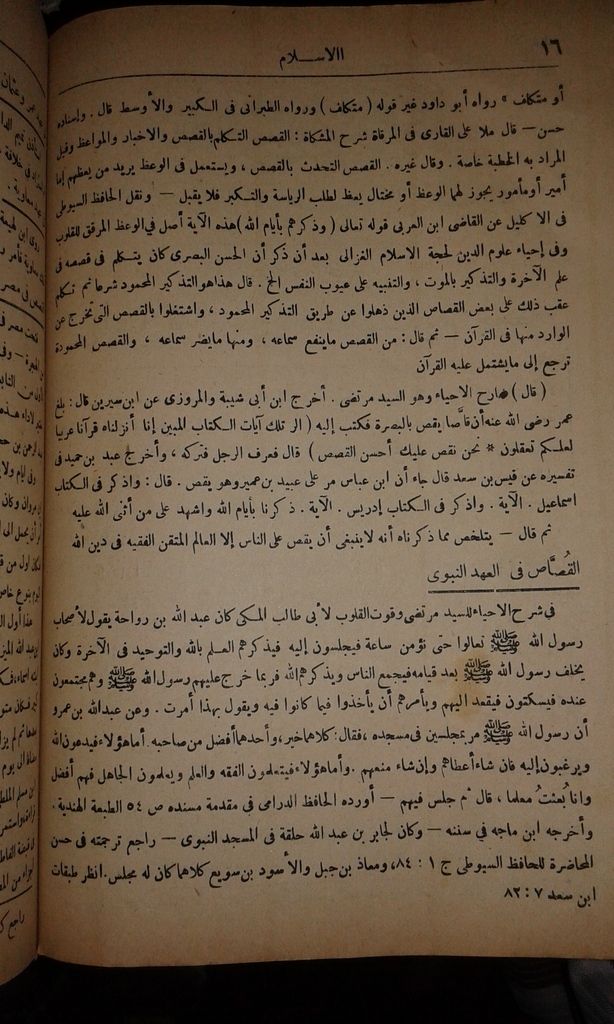 ١٦
الاسـلام
أو متكلف » رواه أبو داود غير قوله ( متكلف ) ورواه الطبرانى فى الكبير والأوسط قال . واسناده
حسن — قال ملا على القارى فى المرقاة شرح المشكاة : القصص التكلم بالقصص والاخبار والمواعظ وقيل
المراد به الخطبة خاصة . وقال غيره . القصص التحدث بالقصص ، ويستعمل فى الوعظ يريد من يعظهم إما
أمير أو مأمور يجوز لهما الوعظ أو مختال يعظ لطلب الرياسة والتكبر فلا يقبل — ونقل الحافظ السيوطى
فى الاكليل عن القاضى ابن العربى قوله تعالى ( وذكرهم بأيام الله ) هذه الآية أصل فى الوعظ المرقق للقلوب
وفى إحياء علوم الدين لحجة الاسلام الغزالى بعد أن ذكر أن الحسن البصرى كان يتكلم فى قصصه فى
علم الآخرة والتذكير بالموت ، والتنبيه على عيوب النفس الخ . قال هذا هو التذكير المحمود شرعا ثم تكلم
عقب ذلك على بعض القصاص الذين ذهلوا عن طريق التذكير المحمود ، واشتغلوا بالقصص التى تخرج عن
الوارد منها فى القرآن — ثم قال : من القصص ما ينفع سماعه ، ومنها ما يضر سماعه ، والقصص المحمودة
ترجع إلى ما يشتمل عليه القرآن
( قال ) شارح الاحياء وهو السيد مرتضى . أخرج ابن أبى شيبة والمروزى عن ابن سيرين قال : بلغ
عمر رضى الله عنه أن قاصًّا يقص بالبصرة فكتب إليه ( الر تلك آيات الكتاب المبين إنا أنزلناه قرآنا عربيا
لعلكم تعقلون * نحن نقص عليك أحسن القصص ) قال فعرف الرجل فتركه ، وأخرج عبد بن حميد فى
تفسيره عن قيس بن سعد قال جاء أن ابن عباس مر على عبيد بن عمير وهو يقص . قال : واذكر فى الكتاب
اسماعيل . الآية . واذكر فى الكتاب إدريس . الآية . ذكرنا بأيام الله واشهد على من أثنى الله عليه
ثم قال — يتلخص مما ذكرناه أنه لا ينبغى أن يقص على الناس إلا العالم المتقن الفقيه فى دين الله
القُصَّاص فى العهد النبوى
فى شرح الاحياء للسيد مرتضى وقوت القلوب لأبى طالب المكى كان عبد الله بن رواحة يقول لأصحاب
رسول الله ﷺ تعالوا حتى نؤمن ساعة فيجلسون إليه فيذكرهم العلم بالله والتوحيد فى الآخرة وكان
يخلف رسول الله ﷺ بعد قيامه فيجمع الناس ويذكرهم الله فربما خرج عليهم رسول الله ﷺ وهم مجتمعون
عنده فيسكتون فيقعد اليهم ويأمرهم أن يأخذوا فيما كانوا فيه ويقول بهذا أمرت . وعن عبد الله بن عمرو
أن رسول الله ﷺ مر بمجلسين فى مسجده ، فقال : كلاهما خير ، وأحدهما أفضل من صاحبه . أما هؤلاء فيدعون الله
ويرغبون إليه فان شاء أعطاهم وإن شاء منعهم . وأما هؤلاء فيتعلمون الفقه والعلم ويعلمون الجاهل فهم أفضل
وانما بُعثتُ معلما ، قال ثم جلس فيهم — أورده الحافظ الدارمى فى مقدمة مسنده ص ٥٤ الطبعة الهندية .
وأخرجه ابن ماجه فى سننه — وكان لجابر بن عبد الله حلقة فى المسجد النبوى — راجع ترجمته فى حسن
المحاضرة للحافظ السيوطى ج ١ : ٨٤ ، ومعاذ بن جبل والأسود بن سويع كلاهما كان له مجلس . انظر طبقات
ابن سعد ٧ : ٨٢